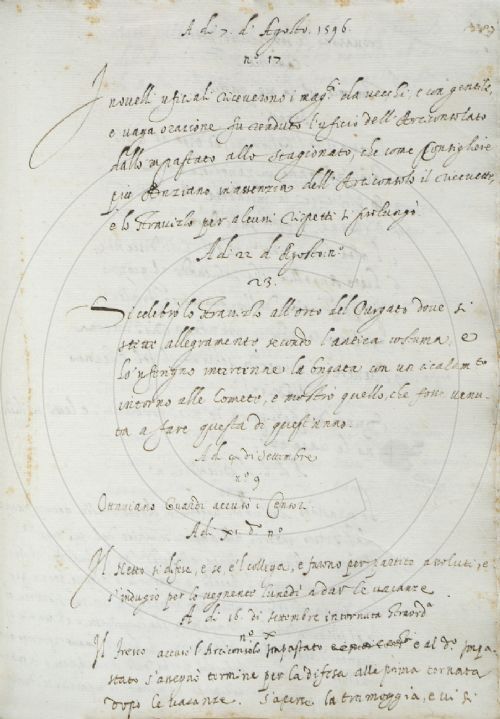 A di 7. d'Agosto. 1596.
nº. 17
I novelli ufiziali riceverono i magi. da vecchi, e con gentile,
e vaga orazione fu renduto l'uficio dell'Arciconsolato
dallo mpastato allo Stagionato, che come Consigliere
più Anziano in assenzia dell'Arciconsolo il ricevette,
e lo Stravizzo per alcuni rispetti si prolungò
A di 22 d'Agosto. nº.
23.
Si celebrò lo Stravizzo all'orto del Purgato dove si
stette allegramente secondo l'antica costuma, e
lo'nferigno intertenne la brigata con un cicalamto
intorno alle Comete, e mostrò quello, che fosse venu-
ta a fare questa di quest'anno.
A di 9 di Settembre
nº 9
Ottaviano accusò i Censori
A di XI. dº nº
Il Stetto si difese, e se e'l collega, e furono per partito assoluti, e
s'indugiò per lo vegnente lunedì a dar le vacanze.
A di 16. di settembre in tornata straordª
nº. X
accusò l'Arciconsolo mpastato e al dº. mpa-
stato s'assegnò termine per la difesa alla prima tornata
dopo le vacanze. S'aperse la tramoggia, e vi si